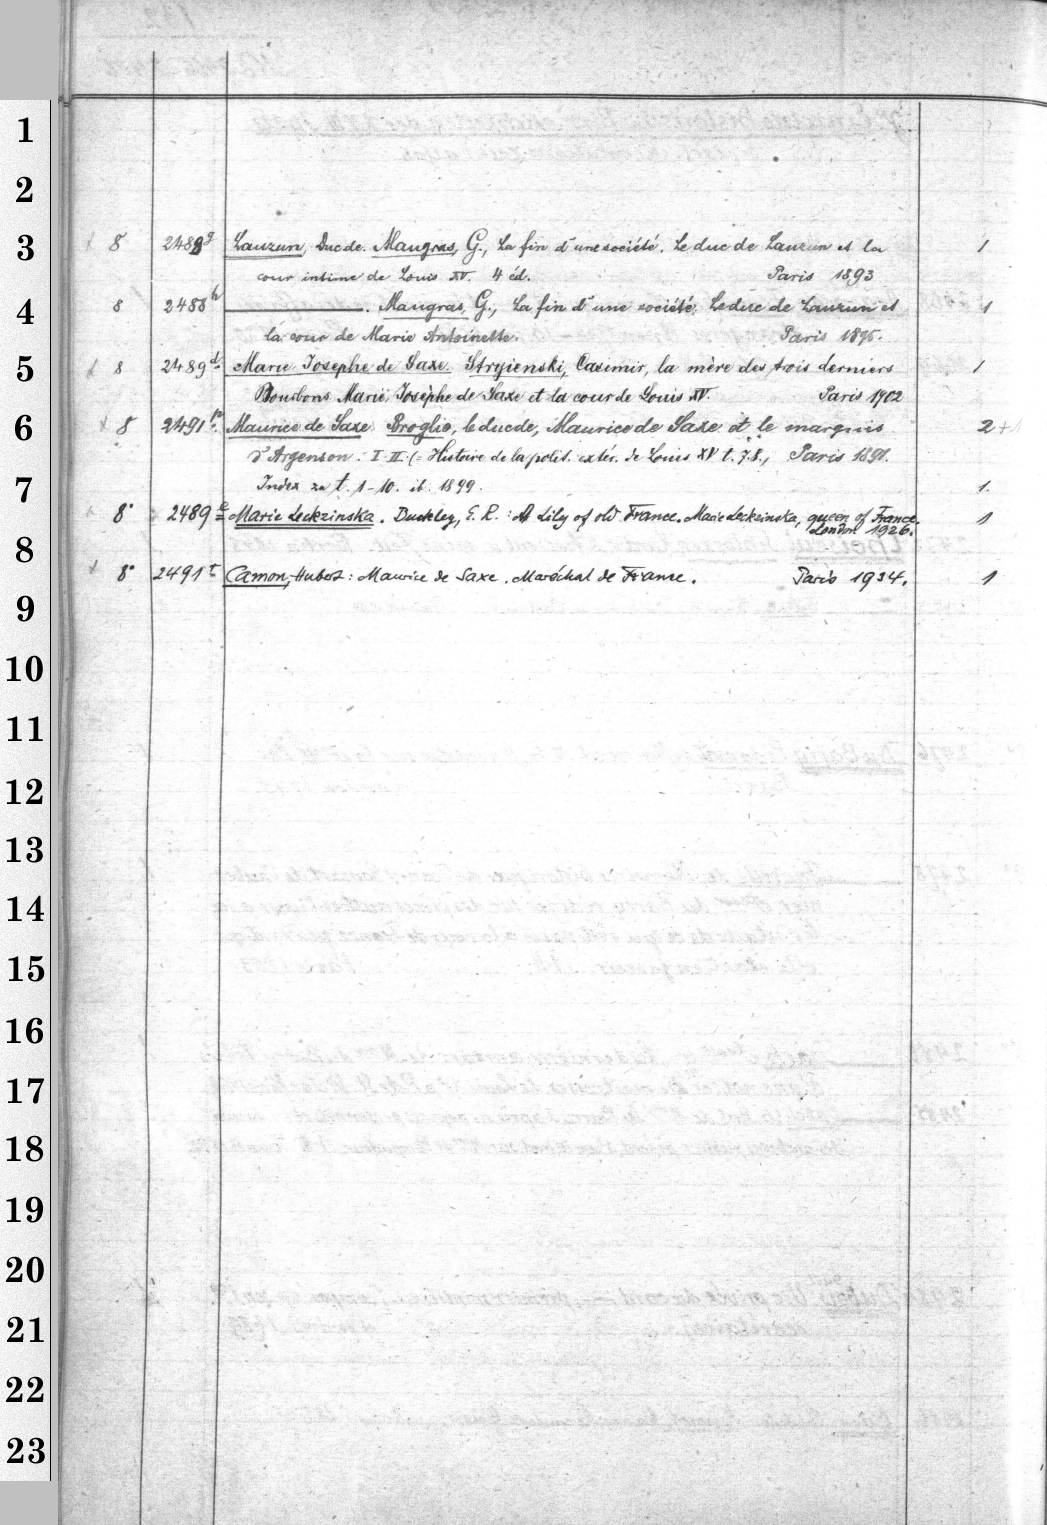 1
2
3 8 2488g Lauzun, Duc de. Maugras, G., La fin d'une société. Le duc de Lauzun et la 1
cour intime de Louis XV. 4 éd. Paris 1893
4 8 2488h ———. Maugras, G., La fin d'une société. Le duc de Lauzun et 1
la cour de Marie Antoinette. Paris 1895.
5 8 2489d. Marie Josephe de Saxe. Stryienski, Casimir, la mère des trois derniers 1
Bourbons Marie Josèphe de Saxe et la cour de Louis XV. Paris 1902
6 8 2491 Maurice de Saxe. Broglie, le duc de, Maurice de Saxe et le marquis 2
d'Argenson. I-II (= Histoire de la polit. extér. de Louis XV t. 7.8., Paris 1891.
7 Index zu t. 1-10. ib. 1899. 1.
8° 2489e Marie Leckzinska. Duckley, E. R.: A Lily of old France. Marie Leckzinska, queen of France. 1
London 1926.
8
8° 2491r Camon, Hubert: Maurice de Saxe. Maréchal de France. Paris 1934. 1
9
10
11
12
13
14
15
16
17
18
19
20
21
22
23